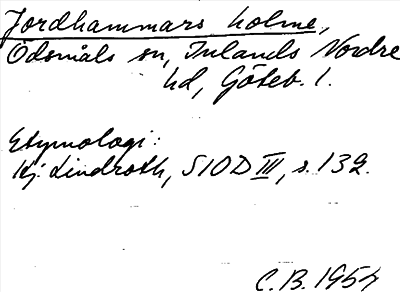 Jordhammars holme,
Ödsmåls sn, Inlands Nordre
hd, Göteb. l.
Etymologi:
Hj. Lindroth, SIOD III, s. 132.
C.B. 1954